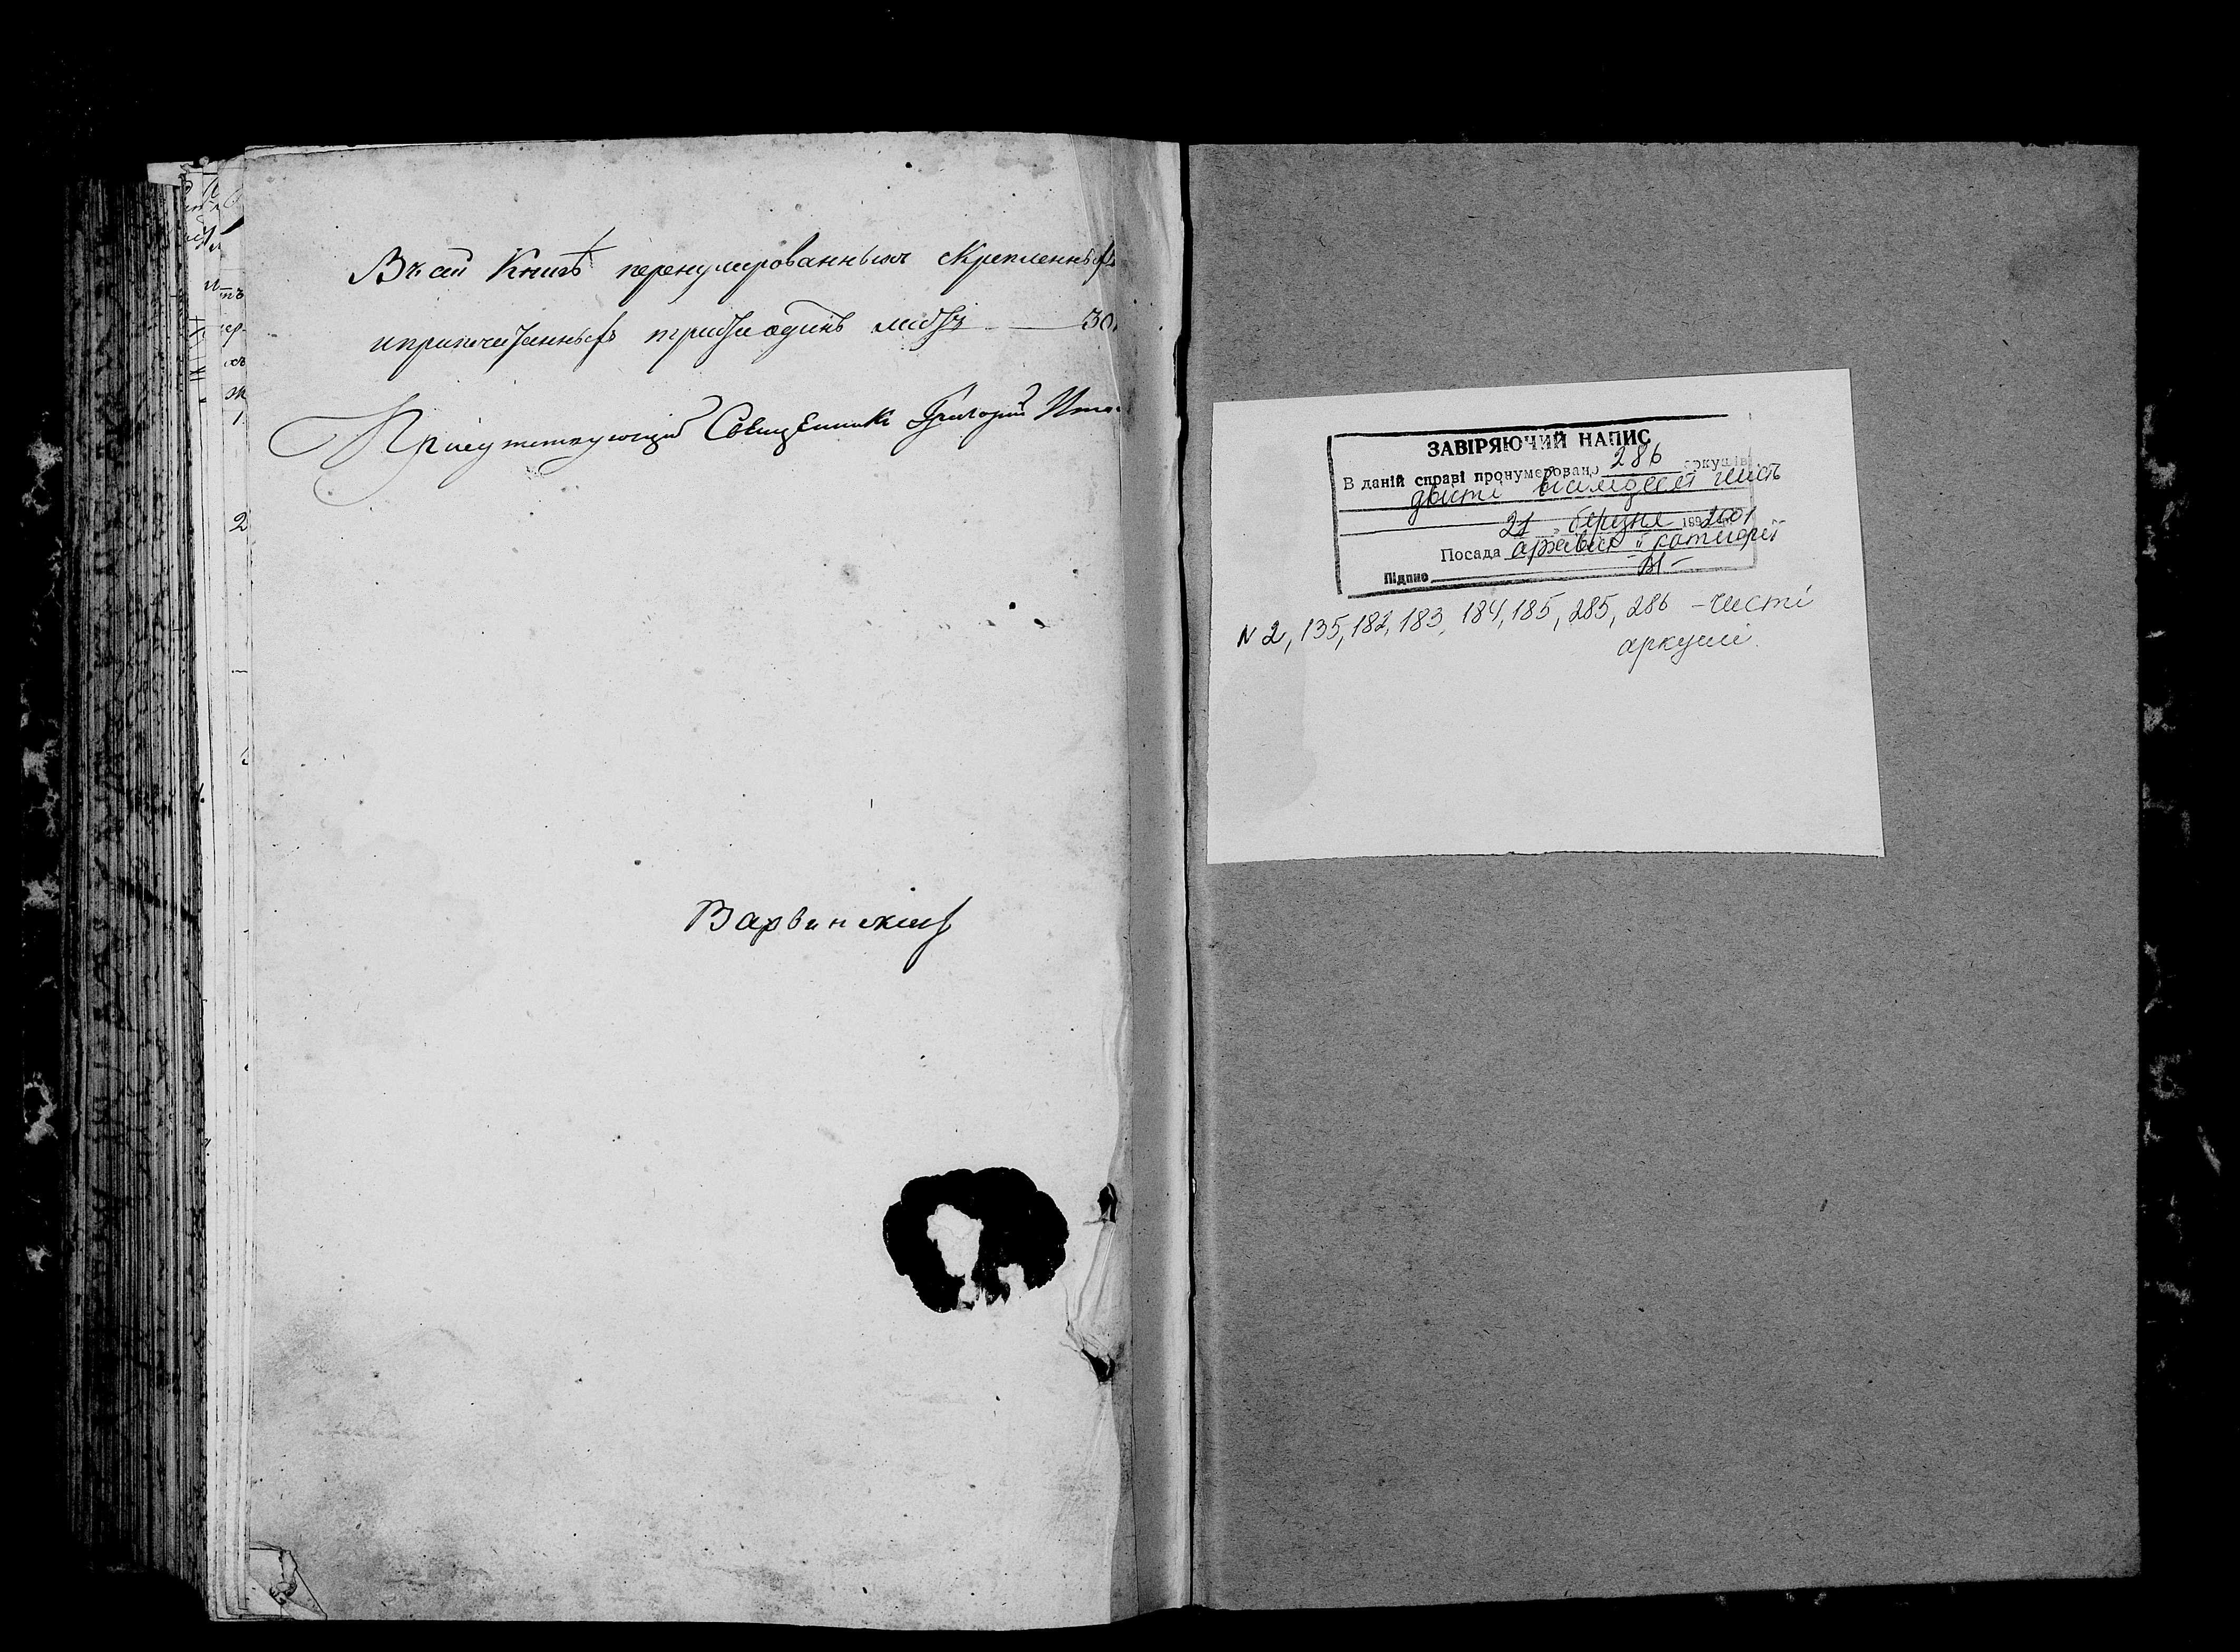 Въ сей Книгѣ перенумерованныхъ скрепленныхъ
и припечатанныхъ триста одинъ листъ — 30
Присутствующій Священникъ Григорій
Варвинскій
ЗАВІРЯЮЧИЙ НАПИС
В даній справі пронумеровано 286 аркушів
двісті вісімдесят шість
21 березня 199 2001
Посада архівіст II категорії
Підпис
N 2, 135, 182, 183, 184, 185, 285, 286 – чисті
аркуші.